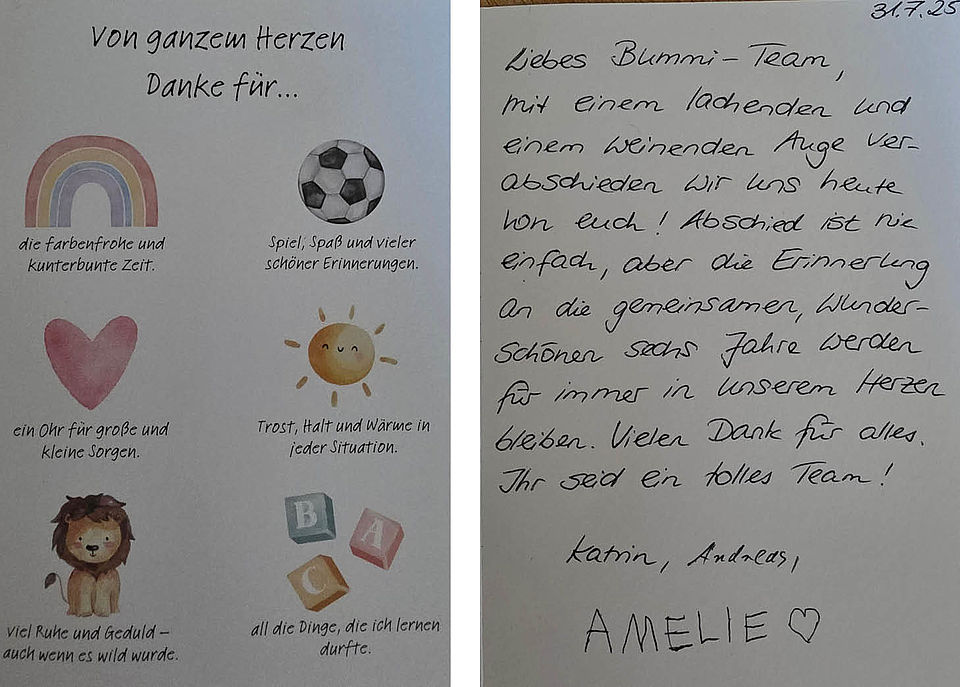 Von ganzem Herzen
Danke für...
die farbenfrohe und
kunterbunte Zeit.
Spiel, Spaß und vieler
schöner Erinnerungen.
ein Ohr für große und
kleine Sorgen.
Trost, Halt und Wärme in
jeder Situation.
B
A
C
viel Ruhe und Geduld –
auch wenn es wild wurde.
all die Dinge, die ich lernen
durfte.
31.7.25
Liebes Bummi-Team,
mit einem lachenden und
einem weinenden Auge ver-
abschieden wir uns heute
von euch! Abschied ist nie
einfach, aber die Erinnerung
an die gemeinsamen, wunder-
schönen sechs Jahre werden
für immer in unserem Herzen
bleiben. Vielen Dank für alles.
Ihr seid ein tolles Team!
Katrin, Andreas,
AMELIE ♡